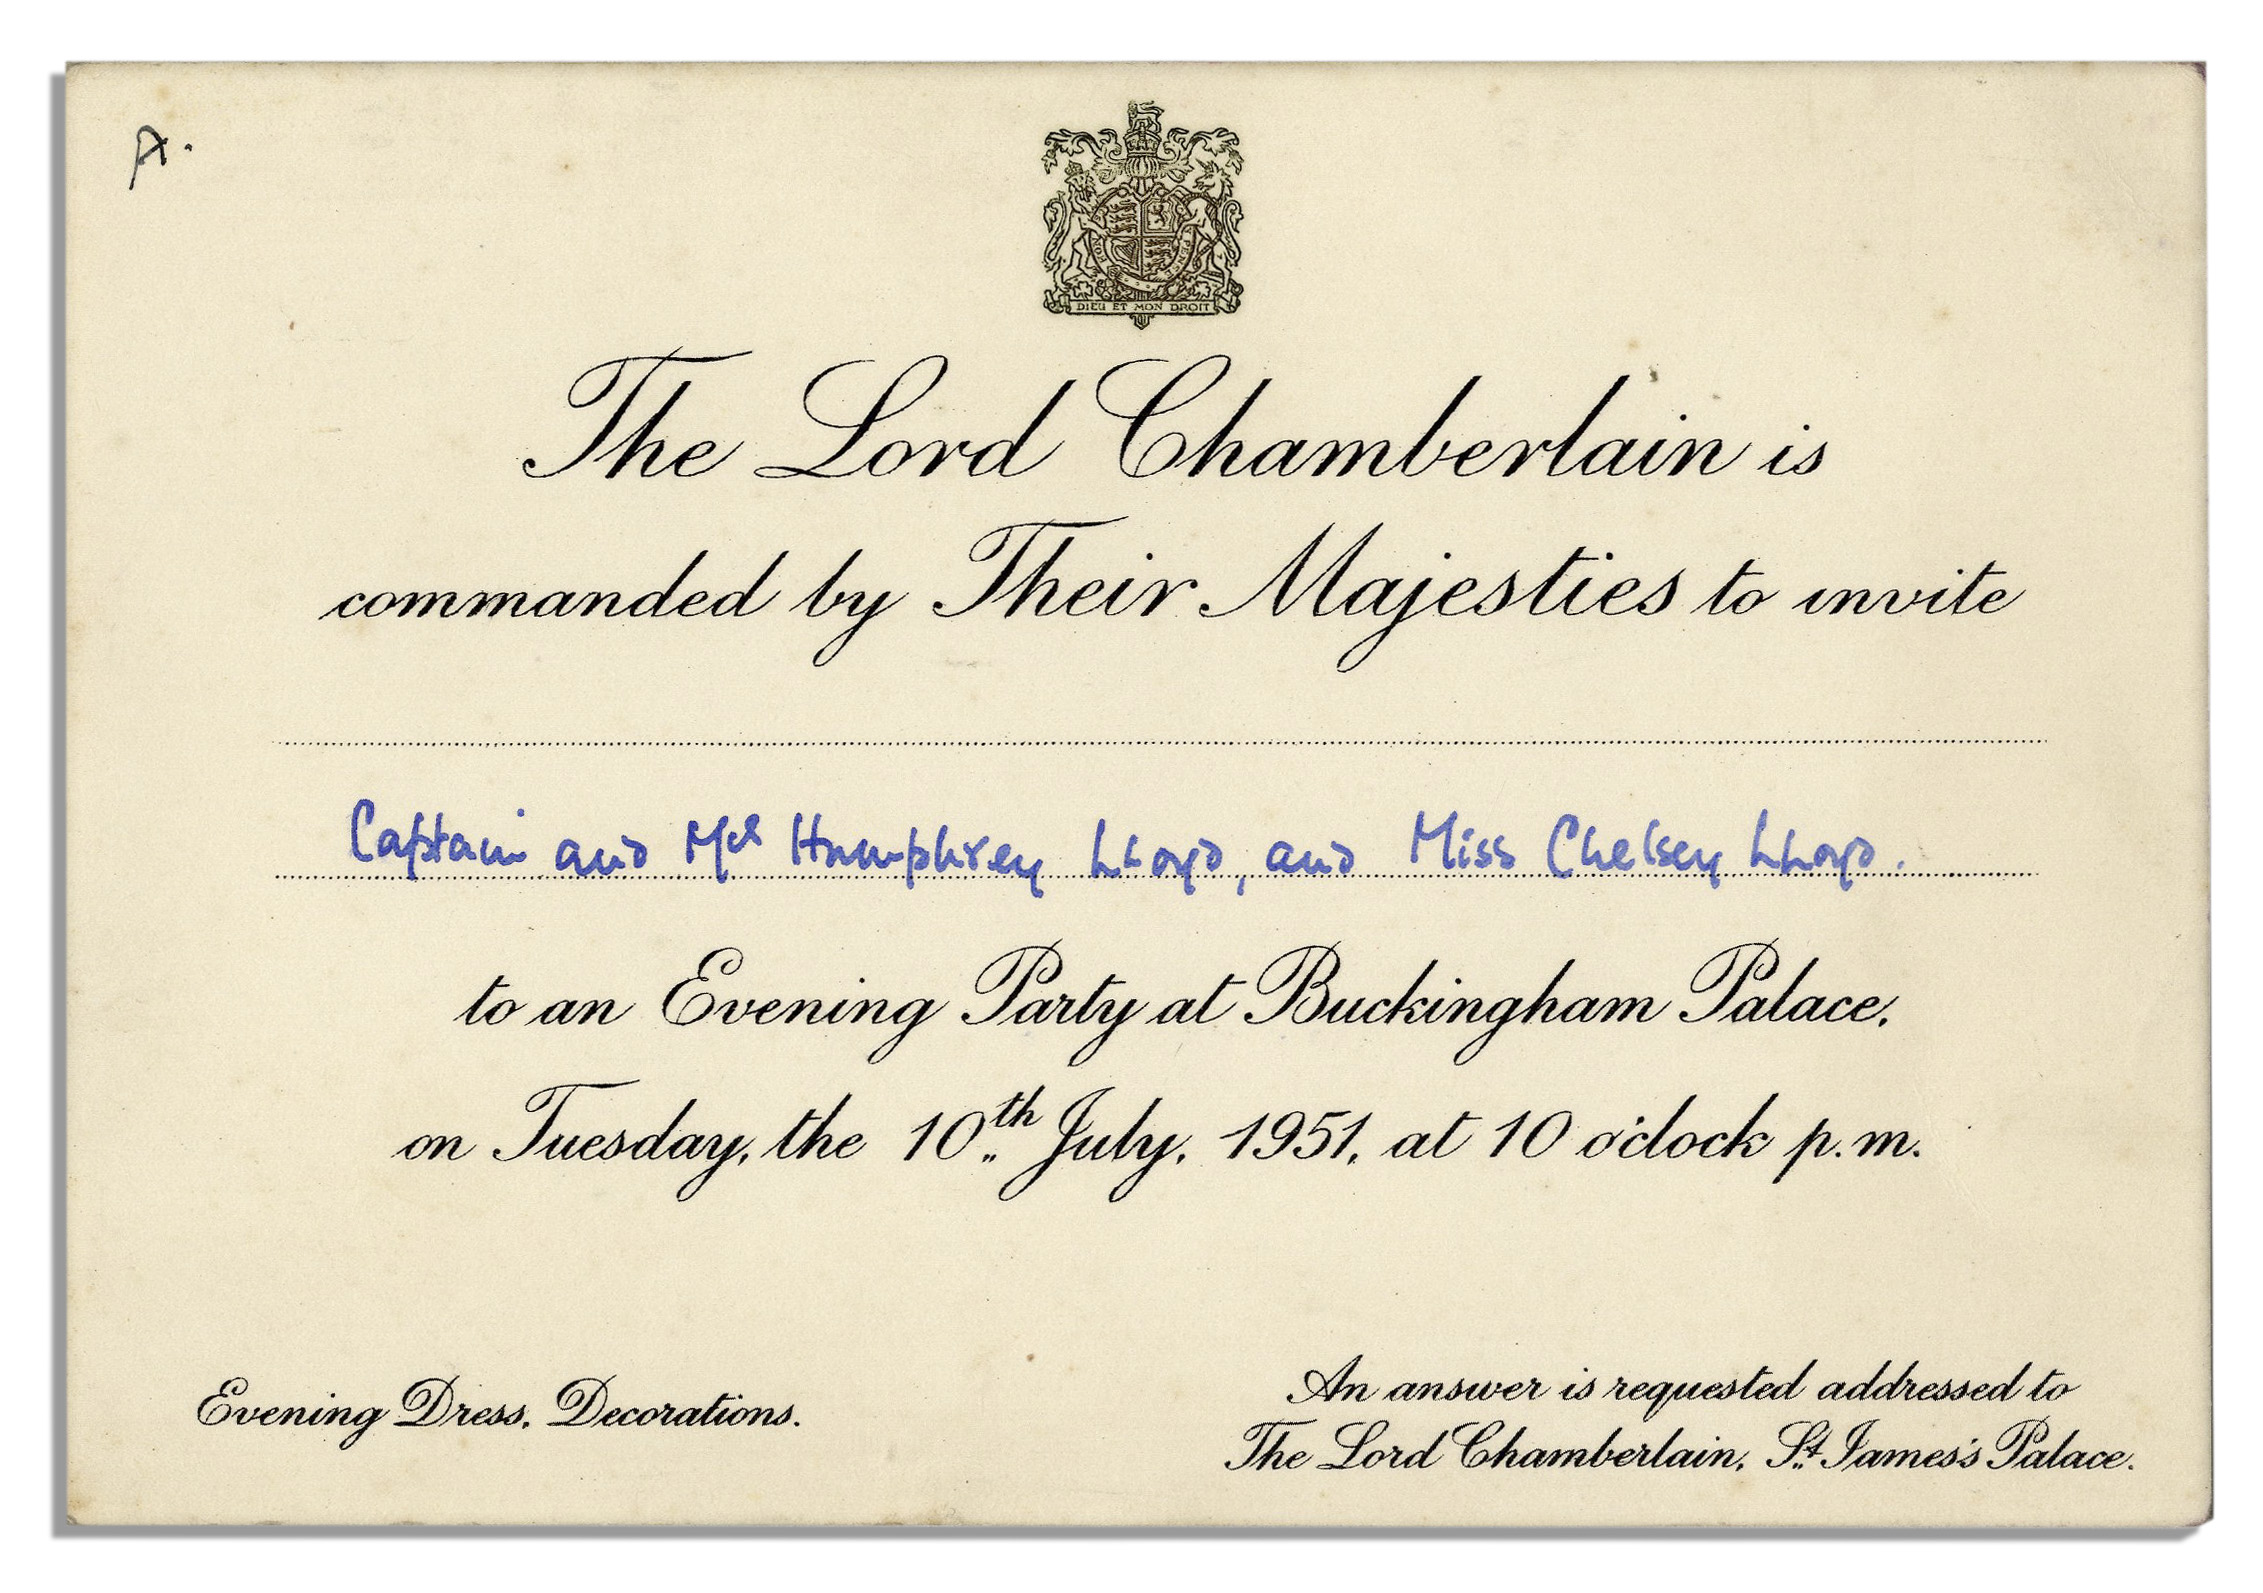 A.
DIEU ET MON DROIT
The Lord Chamberlain is
commanded by Their Majesties to invite
Captain and Mrs Humphrey Lloyd, and Miss Chelsey Lloyd.
to an Evening Party at Buckingham Palace,
on Tuesday, the 10th July, 1951, at 10 o'clock p.m.
Evening Dress, Decorations.
An answer is requested addressed to
The Lord Chamberlain, St. James's Palace.